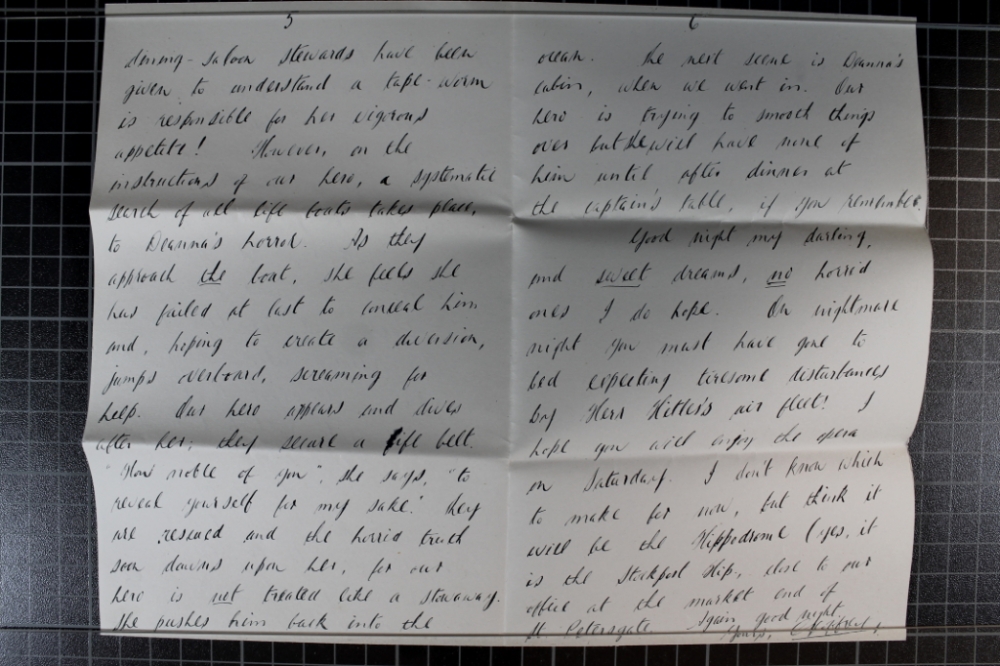 5
dining-saloon stewards have been
given to understand a tape-worm
is responsible for her vigorous
appetite! However, on the
instructions of our hero, a systematic
search of all life boats takes place,
to Deanna's horror. As they
approach the boat, she feels she
has failed at last to conceal him
and, hoping to create a diversion,
jumps overboard, screaming for
help. Our hero appears and dives
after her; they secure a life belt.
"How noble of you", she says, "to
reveal yourself for my sake." They
are rescued and the horrid truth
soon dawns upon her, for our
hero is not treated like a stowaway.
She pushes him back into the
6
ocean. The next scene is Deanna's
cabin, when we went in. Our
hero is trying to smooth things
over but she will have none of
him until after dinner at
the captain's table, if you remember.
Good night my darling,
and sweet dreams, no horrid
ones I do hope. On nightmare
night you must have gone to
bed expecting tiresome disturbances
by Herr Hitler's air fleet! I
hope you will enjoy the opera
on Saturday. I don't know which
to make for now, but think it
will be the Hippodrome (yes, it
is the Stockport Hip, close to our
office at the market end of
St. Petersgate. Again good night,
Yours,